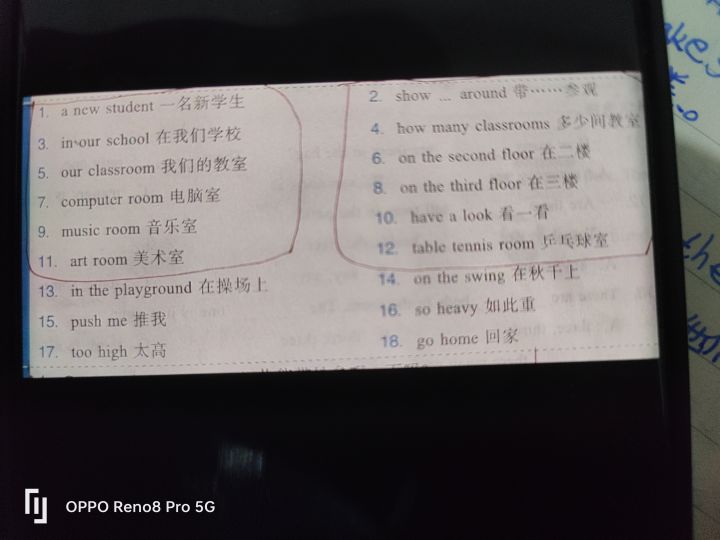 1. a new student 一名新学生
2. show ... around 带……参观
3. in our school 在我们学校
4. how many classrooms 多少间教室
5. our classroom 我们的教室
6. on the second floor 在二楼
7. computer room 电脑室
8. on the third floor 在三楼
9. music room 音乐室
10. have a look 看一看
11. art room 美术室
12. table tennis room 乒乓球室
13. in the playground 在操场上
14. on the swing 在秋千上
15. push me 推我
16. so heavy 如此重
17. too high 太高
18. go home 回家
OPPO Reno8 Pro 5G